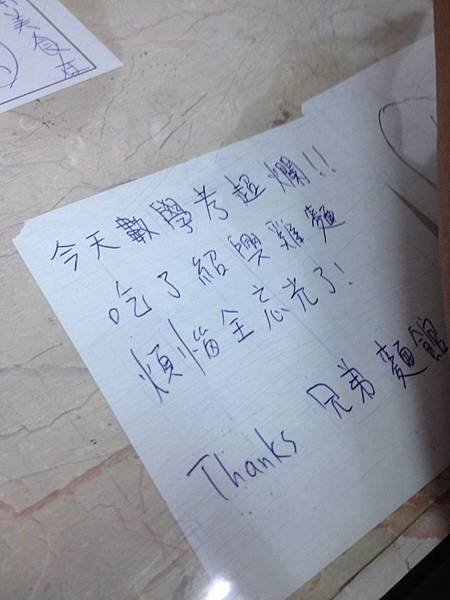 美食在
今天數學考超爛!!
吃了紹興雞麵
煩惱全忘光了!
Thanks 兄弟麵館